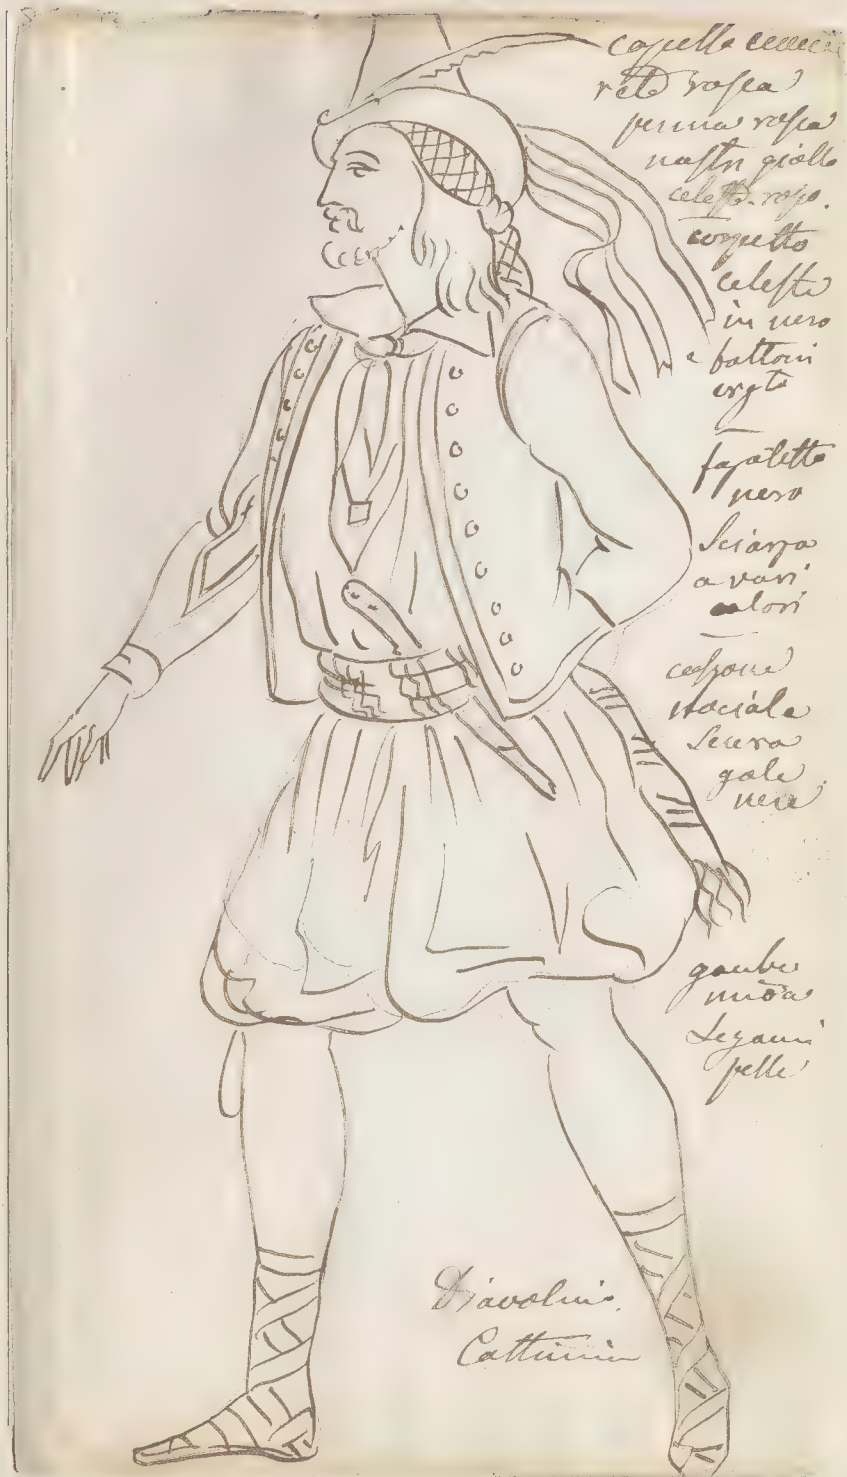 capello
rete rossa
penna rossa
nastri giallo
celeste. rosso.
corpetto
celeste
in nero
e bottoni
argto
fazoletto
nero
Sciarpa
a vari
colori
calzone
Scuro
gale
nere
gambe
Legami
pelle
Diavolino.